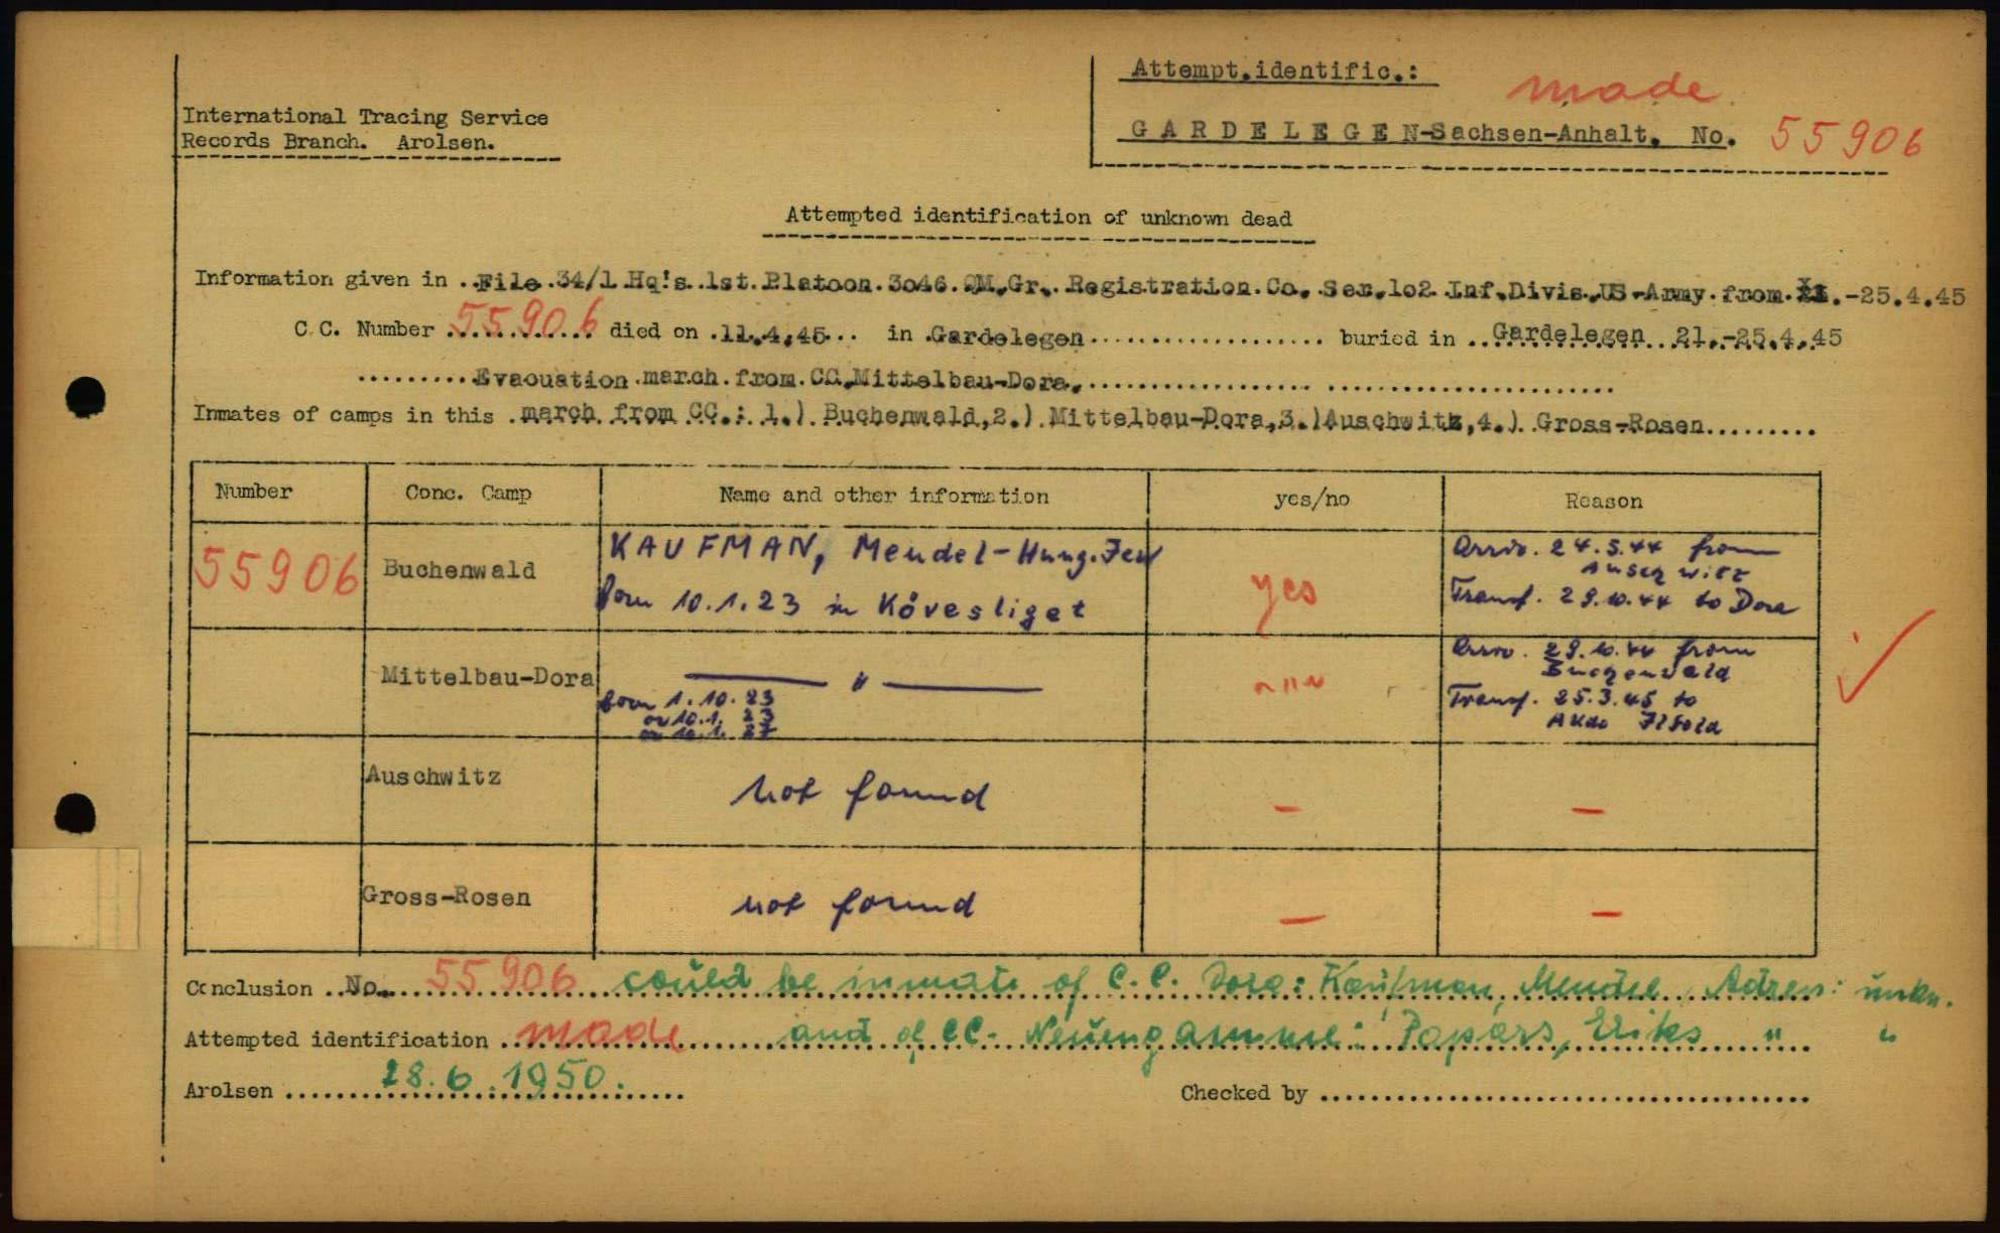 Attempt.identific.: made
International Tracing Service
Records Branch. Arolsen.
GARDELEGEN-Sachsen-Anhalt. No. 55906
Attempted identification of unknown dead
Information given in ..File.34/1 Hq's.1st.Platoon.3o46.QM.Gr..Registration.Co. Ser.1o2 Inf.Divis.US-Army.from.21.-25.4.45
C.C. Number 55906 died on .11.4.45... in .Gardelegen................... buried in ..Gardelegen..21.-25.4.45
.........Evacuation.march.from.CC.Mittelbau-Dora.........................................
Inmates of camps in this .march from CC.: 1.) Buchenwald,2.) Mittelbau-Dora,3.)Auschwitz,4.) Gross-Rosen.........
Number Conc. Camp Name and other information yes/no Reason
55906 Buchenwald KAUFMAN, Mendel-Hung.Jew yes Arriv. 24.5.44 from
Auschwitz
born 10.1.23 in Kövesliget Transf. 29.10.44 to Dora
Mittelbau-Dora — " — ~ " ~ Arriv. 29.10.44 from
Buchenwald
born 1.10.23 Transf. 25.3.45 to
or 10.1.23 Akdo Ilfeld
or 10.1.27
Auschwitz not found — —
Gross-Rosen not found — —
Conclusion ..No... 55906 could be inmate of C.C. Dora: Kaufman, Mendel, Adress: unkn.
Attempted identification made and of CC. Neuengamme: Papars, Eriks " "
Arolsen 28.6.1950. Checked by .......................................